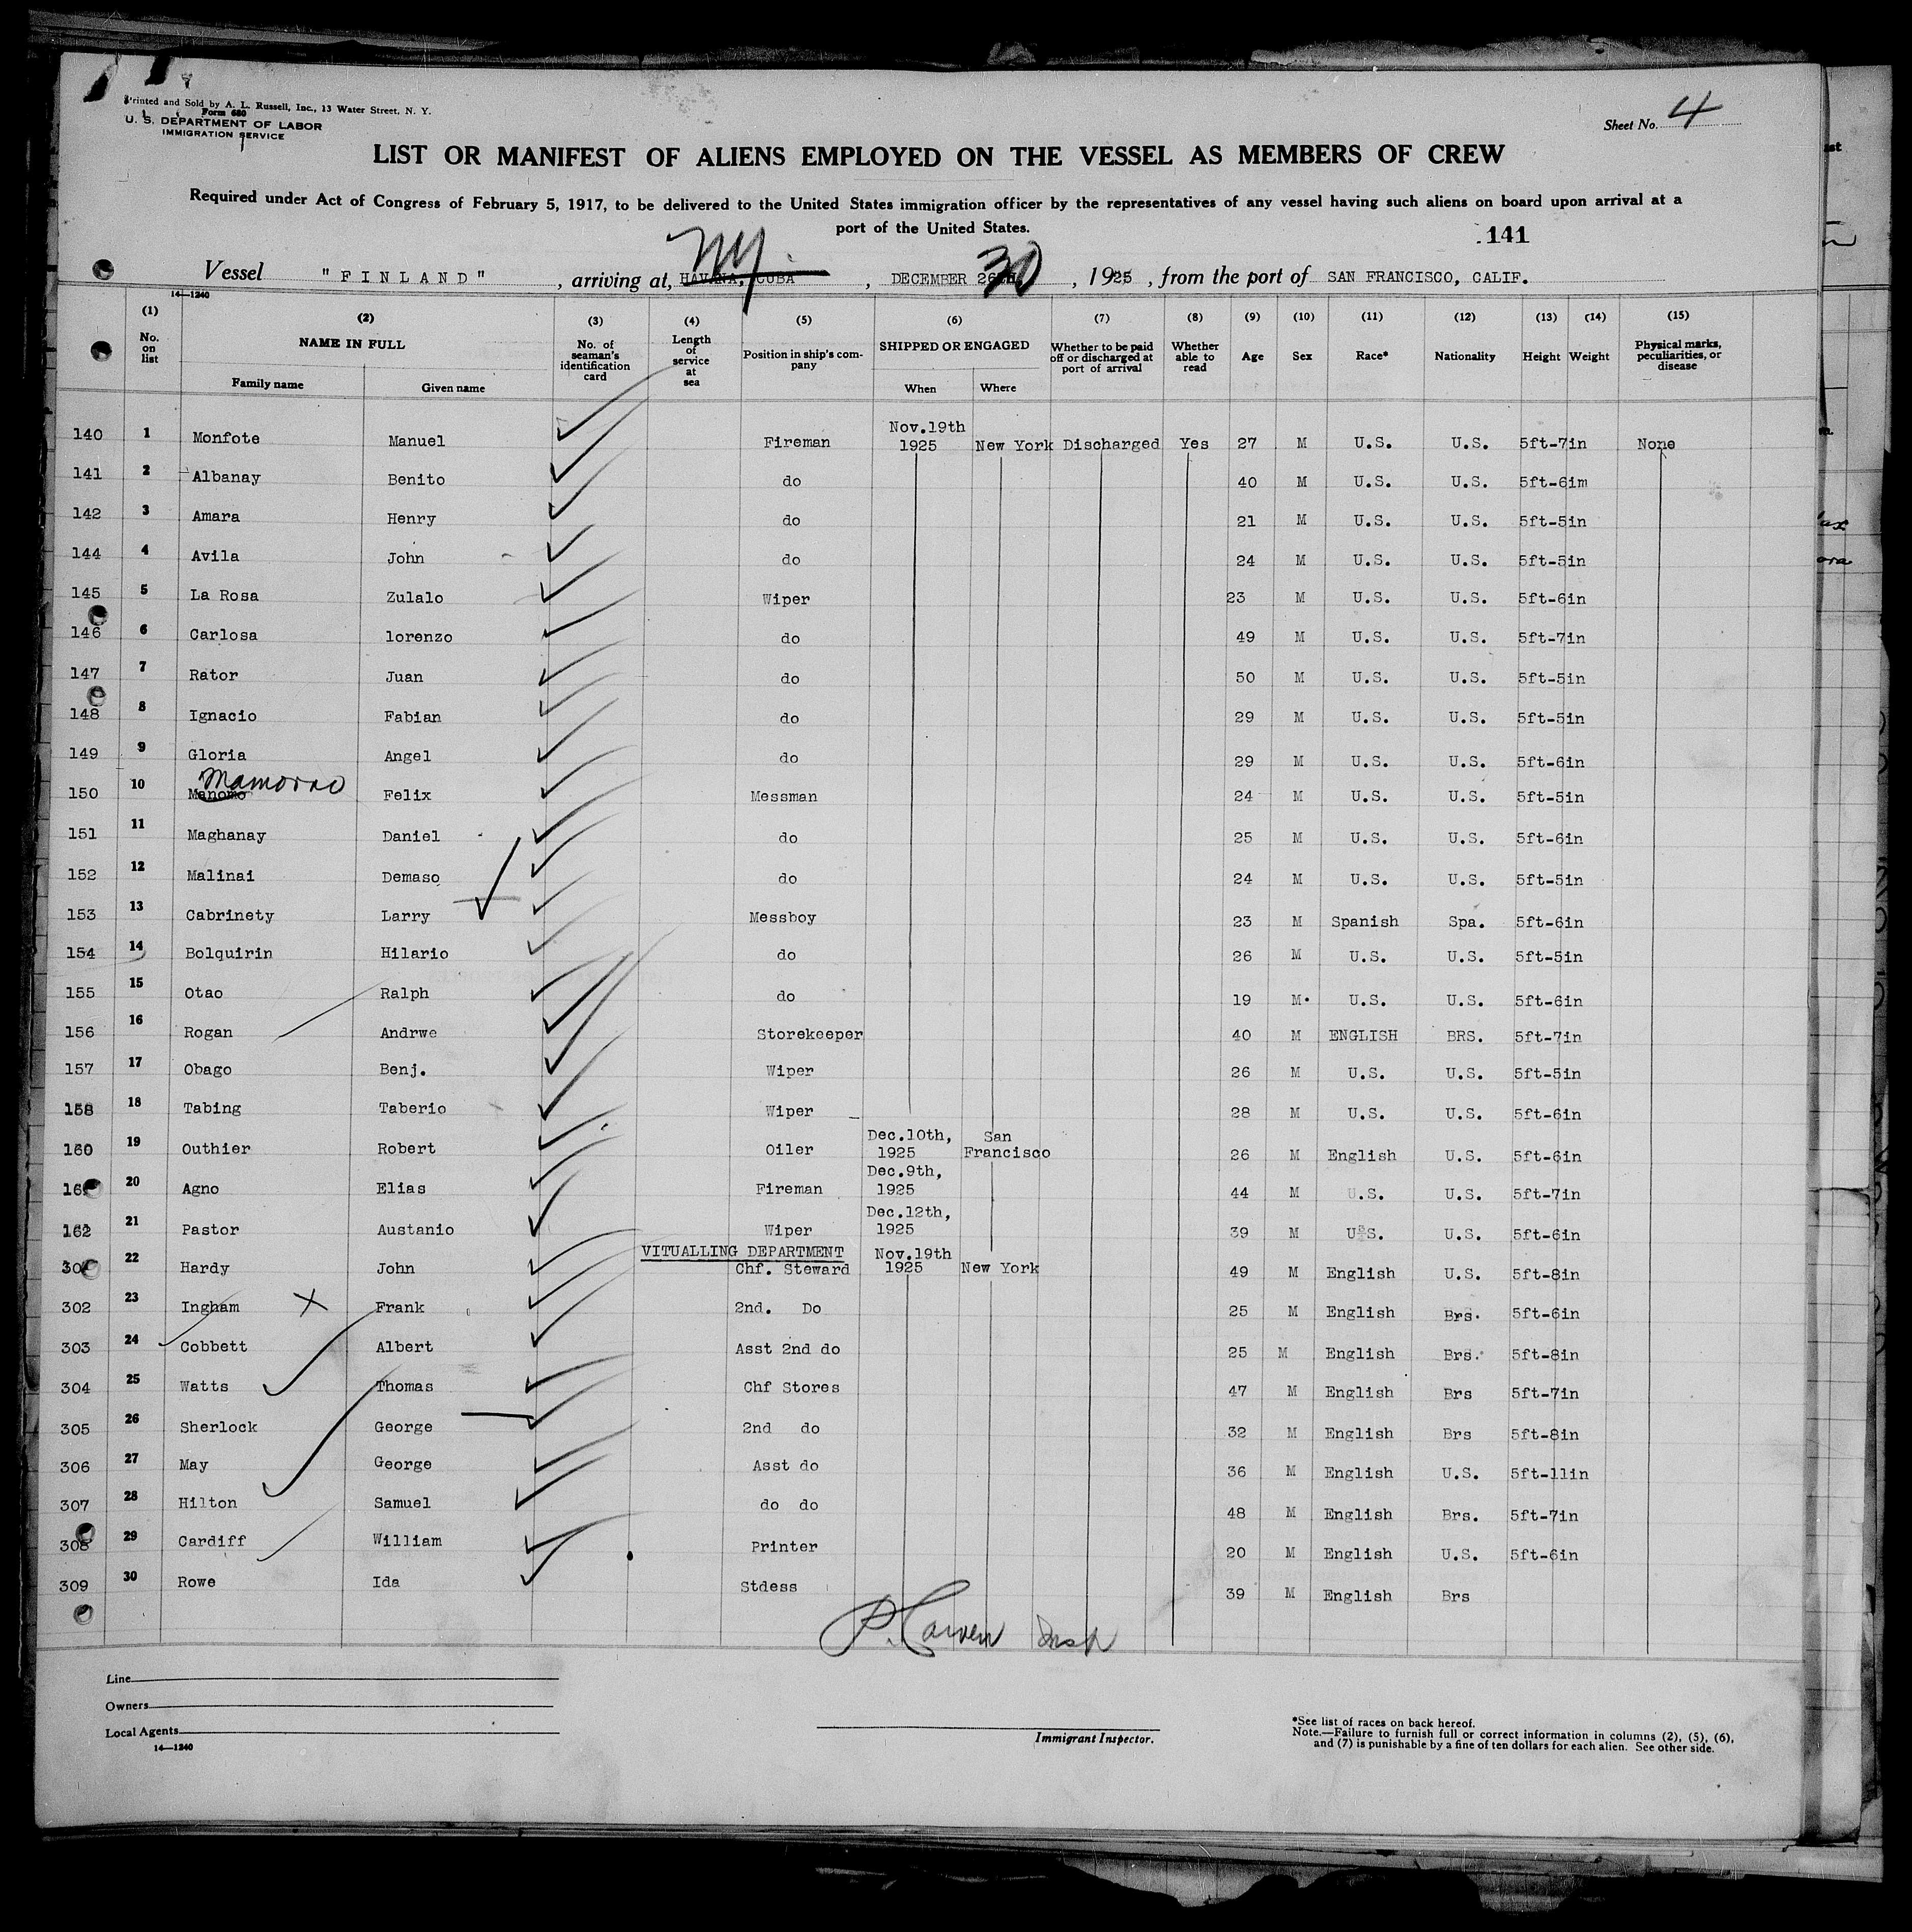 Printed and Sold by A. L. Russell, Inc., 13 Water Street, N. Y.
Form 680
U. S. DEPARTMENT OF LABOR
IMMIGRATION SERVICE
Sheet No. 4
LIST OR MANIFEST OF ALIENS EMPLOYED ON THE VESSEL AS MEMBERS OF CREW
Required under Act of Congress of February 5, 1917, to be delivered to the United States immigration officer by the representatives of any vessel having such aliens on board upon arrival at a
port of the United States.
141
Vessel "FINLAND", arriving at, HAVANA, CUBA NY., DECEMBER 26TH 30, 1925, from the port of SAN FRANCISCO, CALIF.
14—1240
(1) (2) (3) (4) (5) (6) (7) (8) (9) (10) (11) (12) (13) (14) (15)
No. on list NAME IN FULL Family name Given name No. of seaman's identification card Length of service at sea Position in ship's company SHIPPED OR ENGAGED When Where Whether to be paid off or discharged at port of arrival Whether able to read Age Sex Race* Nationality Height Weight Physical marks, peculiarities, or disease
140 1 Monfote Manuel Fireman Nov.19th 1925 New York Discharged Yes 27 M U.S. U.S. 5ft-7in None
141 2 Albanay Benito do 40 M U.S. U.S. 5ft-6im
142 3 Amara Henry do 21 M U.S. U.S. 5ft-5in
144 4 Avila John do 24 M U.S. U.S. 5ft-5in
145 5 La Rosa Zulalo Wiper 23 M U.S. U.S. 5ft-6in
146 6 Carlosa lorenzo do 49 M U.S. U.S. 5ft-7in
147 7 Rator Juan do 50 M U.S. U.S. 5ft-5in
148 8 Ignacio Fabian do 29 M U.S. U.S. 5ft-5in
149 9 Gloria Angel do 29 M U.S. U.S. 5ft-6in
Mamorno
150 10 Manomo Felix Messman 24 M U.S. U.S. 5ft-5in
151 11 Maghanay Daniel do 25 M U.S. U.S. 5ft-6in
152 12 Malinai Demaso do 24 M U.S. U.S. 5ft-5in
153 13 Cabrinety Larry Messboy 23 M Spanish Spa. 5ft-6in
154 14 Bolquirin Hilario do 26 M U.S. U.S. 5ft-5in
155 15 Otao Ralph do 19 M. U.S. U.S. 5ft-6in
156 16 Rogan Andrwe Storekeeper 40 M ENGLISH BRS. 5ft-7in
157 17 Obago Benj. Wiper 26 M U.S. U.S. 5ft-5in
158 18 Tabing Taberio Wiper 28 M U.S. U.S. 5ft-6in
160 19 Outhier Robert Oiler Dec.10th, 1925 San Francisco 26 M English U.S. 5ft-6in
20 Agno Elias Fireman Dec.9th, 1925 44 M U.S. U.S. 5ft-7in
162 21 Pastor Austanio Wiper Dec.12th, 1925 39 M U.S. U.S. 5ft-6in
VITUALLING DEPARTMENT
22 Hardy John Chf. Steward Nov.19th 1925 New York 49 M English U.S. 5ft-8in
302 23 Ingham X Frank 2nd. Do 25 M English Brs. 5ft-6in
303 24 Cobbett Albert Asst 2nd do 25 M English Brs. 5ft-8in
304 25 Watts Thomas Chf Stores 47 M English Brs 5ft-7in
305 26 Sherlock George 2nd do 32 M English Brs 5ft-8in
306 27 May George Asst do 36 M English U.S. 5ft-11in
307 28 Hilton Samuel do do 48 M English Brs. 5ft-7in
308 29 Cardiff William Printer 20 M English U.S. 5ft-6in
309 30 Rowe Ida Stdess 39 M English Brs
Insp
Line
Owners
Local Agents
14—1240
Immigrant Inspector.
*See list of races on back hereof.
Note.—Failure to furnish full or correct information in columns (2), (5), (6),
and (7) is punishable by a fine of ten dollars for each alien. See other side.